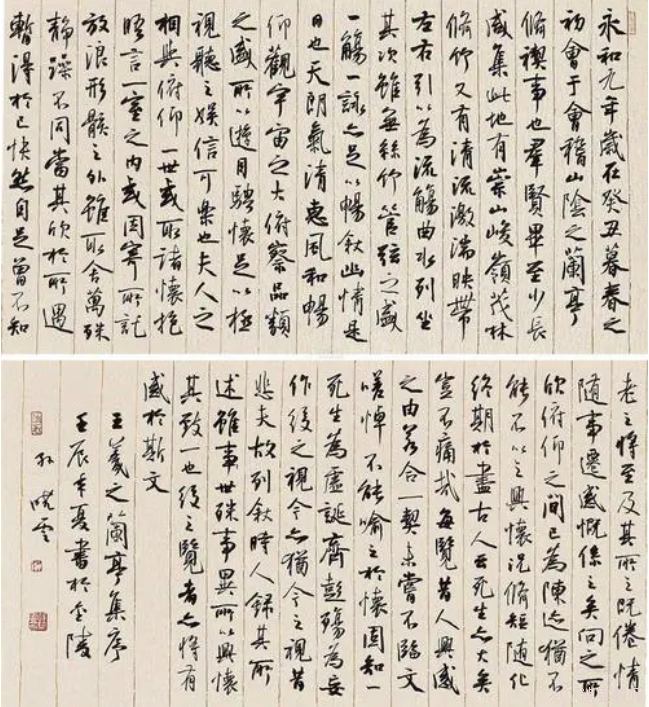 永和九年歲在癸丑暮春之
初會于會稽山陰之蘭亭
脩禊事也羣賢畢至少長
咸集此地有崇山峻嶺茂林
脩竹又有清流激湍映帶
左右引以為流觴曲水列坐
其次雖無絲竹管弦之盛
一觴一詠亦足以暢敘幽情是
日也天朗氣清惠風和暢
仰觀宇宙之大俯察品類
之盛所以遊目騁懷足以極
視聽之娛信可樂也夫人之
相與俯仰一世或取諸懷抱
悟言一室之內或因寄所託
放浪形骸之外雖取舍萬殊
靜躁不同當其欣於所遇
暫得於己快然自足曾不知
老之將至及其所之既倦情
隨事遷感慨係之矣向之所
欣俯仰之間已為陳迹猶不
能不以之興懷況脩短隨化
終期於盡古人云死生亦大矣
豈不痛哉每覽昔人興感
之由若合一契未嘗不臨文
嗟悼不能喻之於懷固知一
死生為虛誕齊彭殤為妄
作後之視今亦猶今之視昔
悲夫故列敘時人錄其所
述雖事世殊事異所以興懷
其致一也後之覽者亦將有
感於斯文
王羲之蘭亭集序
壬辰年夏書於金陵
孙曉雲